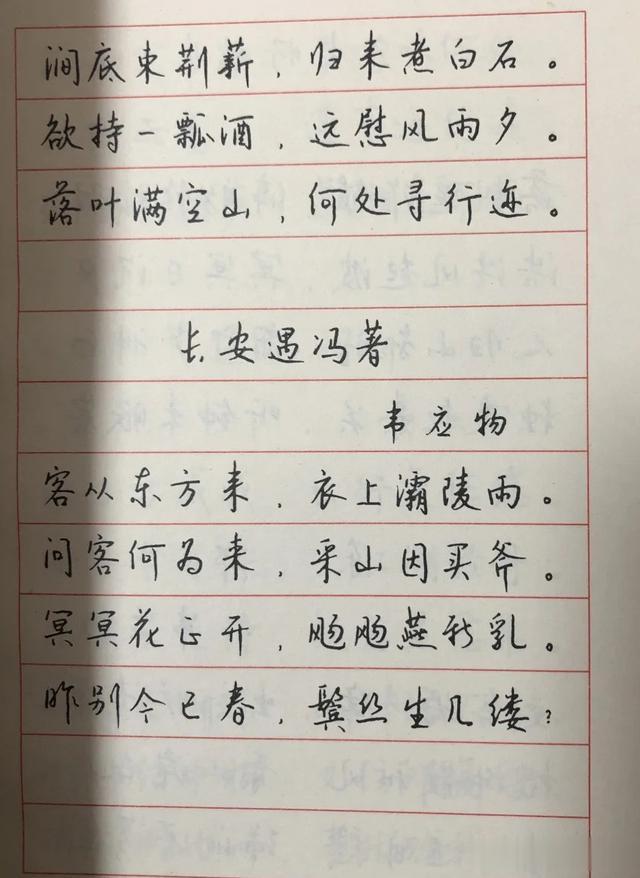 涧底束荆薪，归来煮白石。
欲持一瓢酒，远慰风雨夕。
落叶满空山，何处寻行迹。
长安遇冯著
韦应物
客从东方来，衣上灞陵雨。
问客何为来，采山因买斧。
冥冥花正开，飏飏燕新乳。
昨别今已春，鬓丝生几缕？